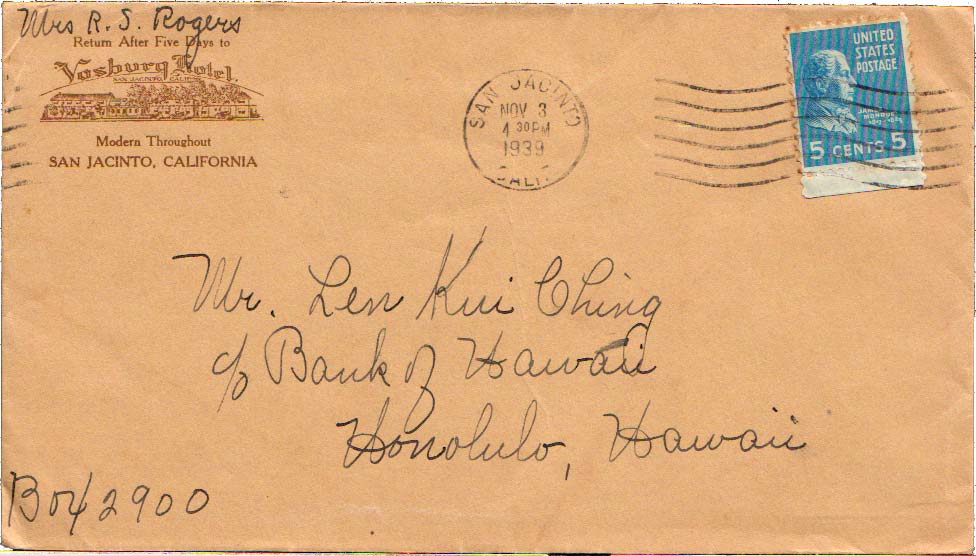 Mrs R. S. Rogers
Return After Five Days to
Vosburg Hotel.
SAN JACINTO, CALIF.
Modern Throughout
SAN JACINTO, CALIFORNIA
SAN JACINTO
NOV 3
4 30 PM
1939
CALIF.
UNITED
STATES
POSTAGE
JAMES
MONROE
1817-1825
5 CENTS 5
Mr. Len Kui Ching
c/o Bank of Hawaii
Honolulo, Hawaii
Box 2900